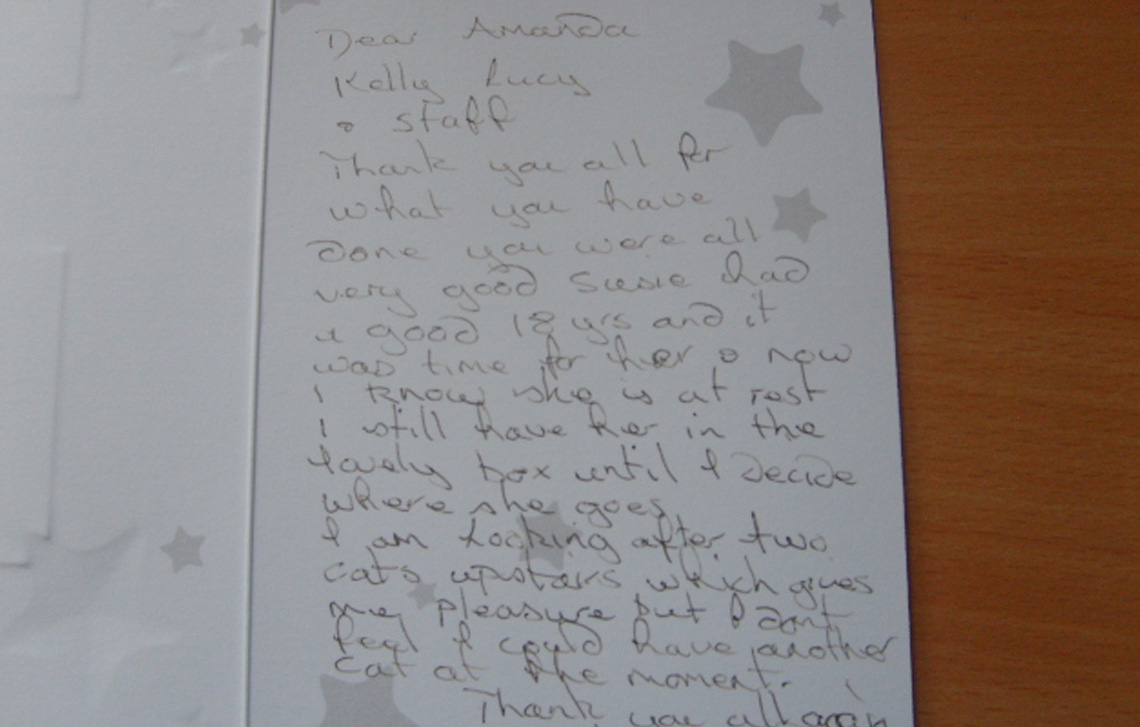 Dear Amanda
Kelly Lucy
& staff
Thank you all for
what you have
done you were all
very good Susie had
a good 18 yrs and it
was time for her & now
I know she is at rest
I still have her in the
lovely box until I decide
where she goes
I am looking after two
cats upstairs which gives
me pleasure but I dont
feel I could have another
cat at the moment.
Thank you all again